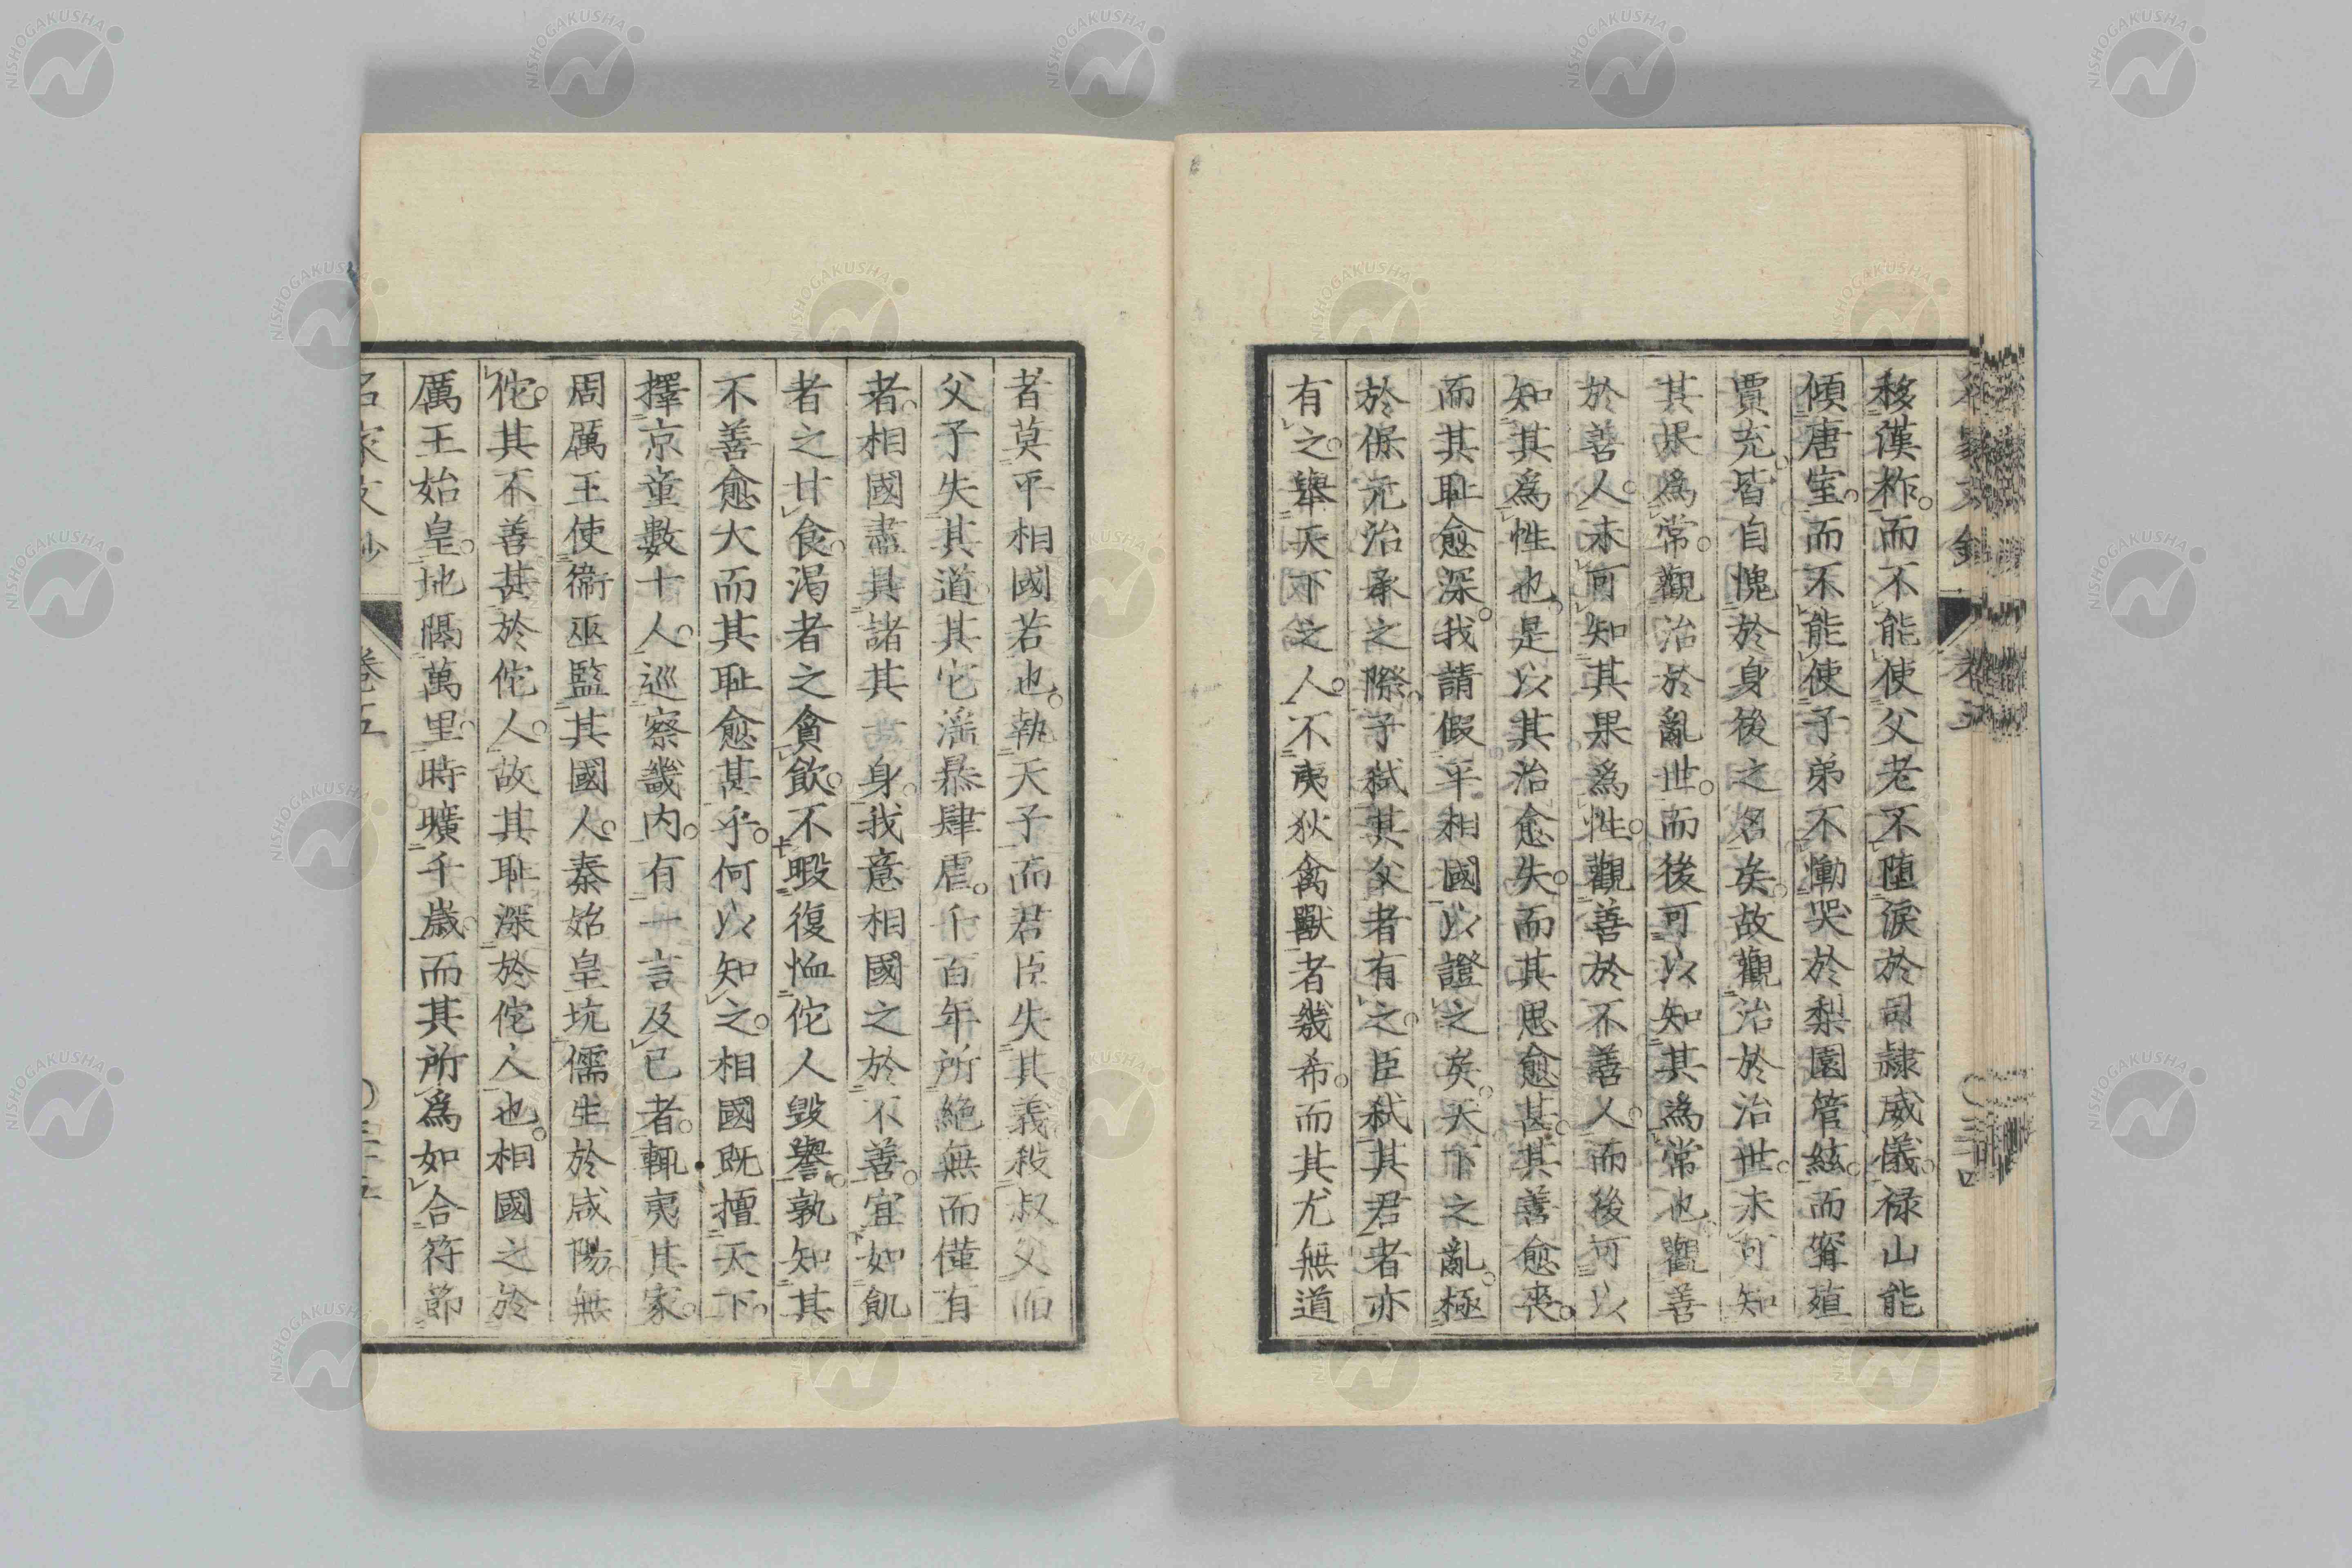 移漢祚。而不能使父老不墮淚於司隷威儀。祿山能
傾唐室。而不能使子弟不慟哭於梨園管絃。而窅殖
賈充。皆自愧於身後之名矣。故觀治於治世。未可知
其果爲常。觀治於亂世。而後可以知其爲常也。觀善
於善人。未可知其果爲性。觀善於不善人。而後可以
知其爲性也。是以其治愈失。而其思愈甚。其善愈喪。
而其耻愈深。我請假平相國以證之矣。天下之亂。極
於保元治承之際。子弑其父者有之。臣弑其君者亦
有之。舉天下之人。不夷狄禽獸者幾希。而其尤無道
者莫平相國若也。執天子而君臣失其義。殺叔父而
父子失其道。其它滛暴肆虐。千百年所絶無而僅有
者。相國盡具諸其身。我意相國之於不善。宜如飢
者之甘食。渇者之貪飲。不暇復恤佗人毀譽。孰知其
不善愈大而其耻愈甚乎。何以知之。相國既擅天下。
擇京童數十人。巡察畿内。有一言及已者。輙夷其家。
周厲王使衞巫監其國人。秦始皇坑儒生於咸陽。無
佗。其不善甚於佗人。故其耻深於佗人也。相國之於
厲王始皇。地隔萬里。時曠千歲。而其所爲如合符節
名家文鈔
卷五
NISHOGAKUSHA